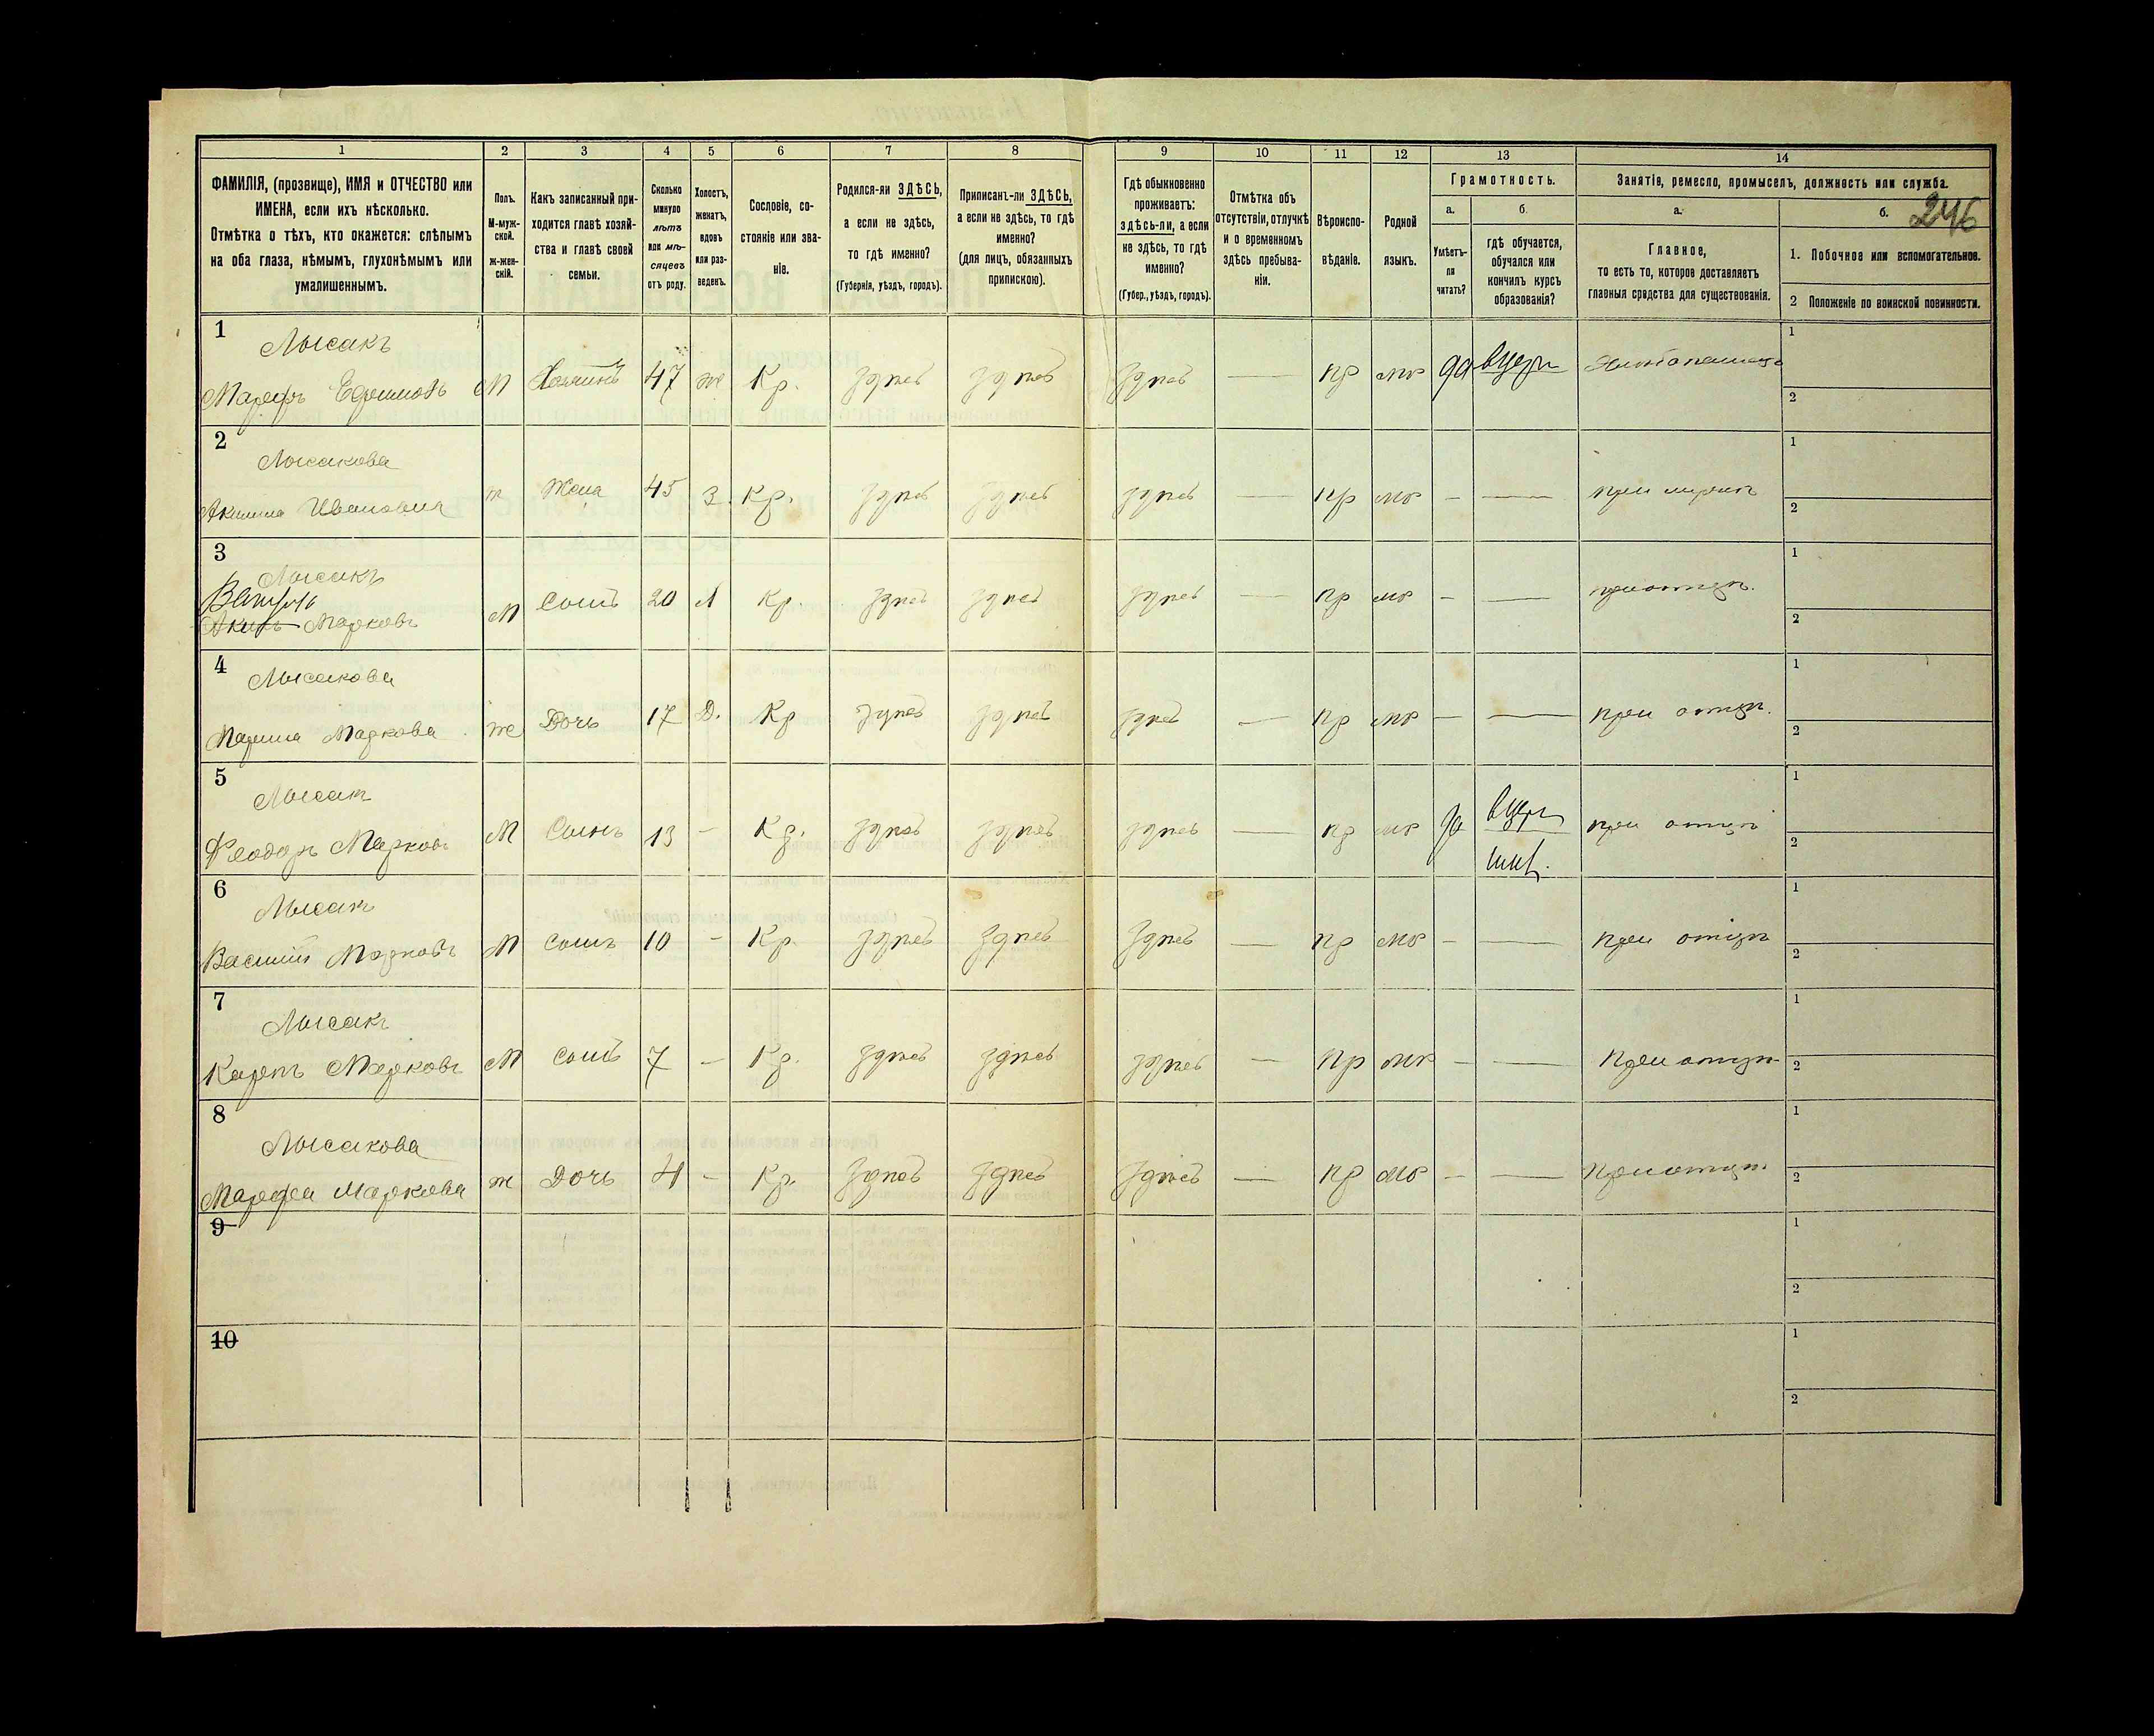 246
1 2 3 4 5 6 7 8 9 10 11 12 13 14
ФАМИЛІЯ, (прозвище), ИМЯ и ОТЧЕСТВО или ИМЕНА, если ихъ нѣсколько.
Отмѣтка о тѣхъ, кто окажется: слѣпымъ на оба глаза, нѣмымъ, глухонѣмымъ или умалишеннымъ.
Полъ.
М-мужской.
Ж-женскій.
Какъ записанный приходится главѣ хозяйства и главѣ своей семьи.
Сколько минуло лѣтъ или мѣсяцевъ отъ роду.
Холостъ, женатъ, вдовъ или разведенъ.
Сословіе, состояніе или званіе.
Родился-ли ЗДѢСЬ, а если не здѣсь, то гдѣ именно?
(Губернія, уѣздъ, городъ).
Приписанъ-ли ЗДѢСЬ, а если не здѣсь, то гдѣ именно?
(для лицъ, обязанныхъ припискою).
Гдѣ обыкновенно проживаетъ: здѣсь-ли, а если не здѣсь, то гдѣ именно?
(Губер., уѣздъ, городъ).
Отмѣтка объ отсутствіи, отлучкѣ и о временномъ здѣсь пребываніи.
Вѣроисповѣданіе.
Родной языкъ.
Грамотность.
а.
Умѣетъ-ли читать?
б.
гдѣ обучается, обучался или кончилъ курсъ образованія?
Занятіе, ремесло, промыселъ, должность или служба.
а.
Главное,
то есть то, которое доставляетъ главныя средства для существованія.
б.
1. Побочное или вспомогательное.
2 Положеніе по воинской повинности.
1 Лысакъ
Маркъ Ефимовъ М Хозяинъ 47 ж Кр. здѣсь здѣсь здѣсь — пр мр да 1 2
2 Лысакова
Акилина Ивановна ж Жена 45 З. Кр. здѣсь здѣсь здѣсь — пр мр - — при мужѣ 1 2
3 Лысакъ
Марковъ М Сынъ 20 Кр. здѣсь здѣсь здѣсь — пр мр - — при отцѣ. 1 2
4 Лысакова
Марина Маркова же Дочь 17 Д. Кр здѣсь здѣсь здѣсь — пр мр - — при отцѣ. 1 2
5 Лысакъ
Феодоръ Марковъ М Сынъ 13 - Кр. здѣсь здѣсь здѣсь — пр мр да при отцѣ 1 2
6 Лысакъ
Василій Марковъ М сынъ 10 - Кр. здѣсь здѣсь здѣсь — пр мр - — при отцѣ 1 2
7 Лысакъ
Карпъ Марковъ М сынъ 7 - Кр. здѣсь здѣсь здѣсь — пр мр - — при отцѣ 1 2
8 Лысакова
Марфа Маркова ж Дочь 4 - Кр. здѣсь здѣсь здѣсь — пр мр - — при отцѣ 1 2
9 1 2
10 1 2